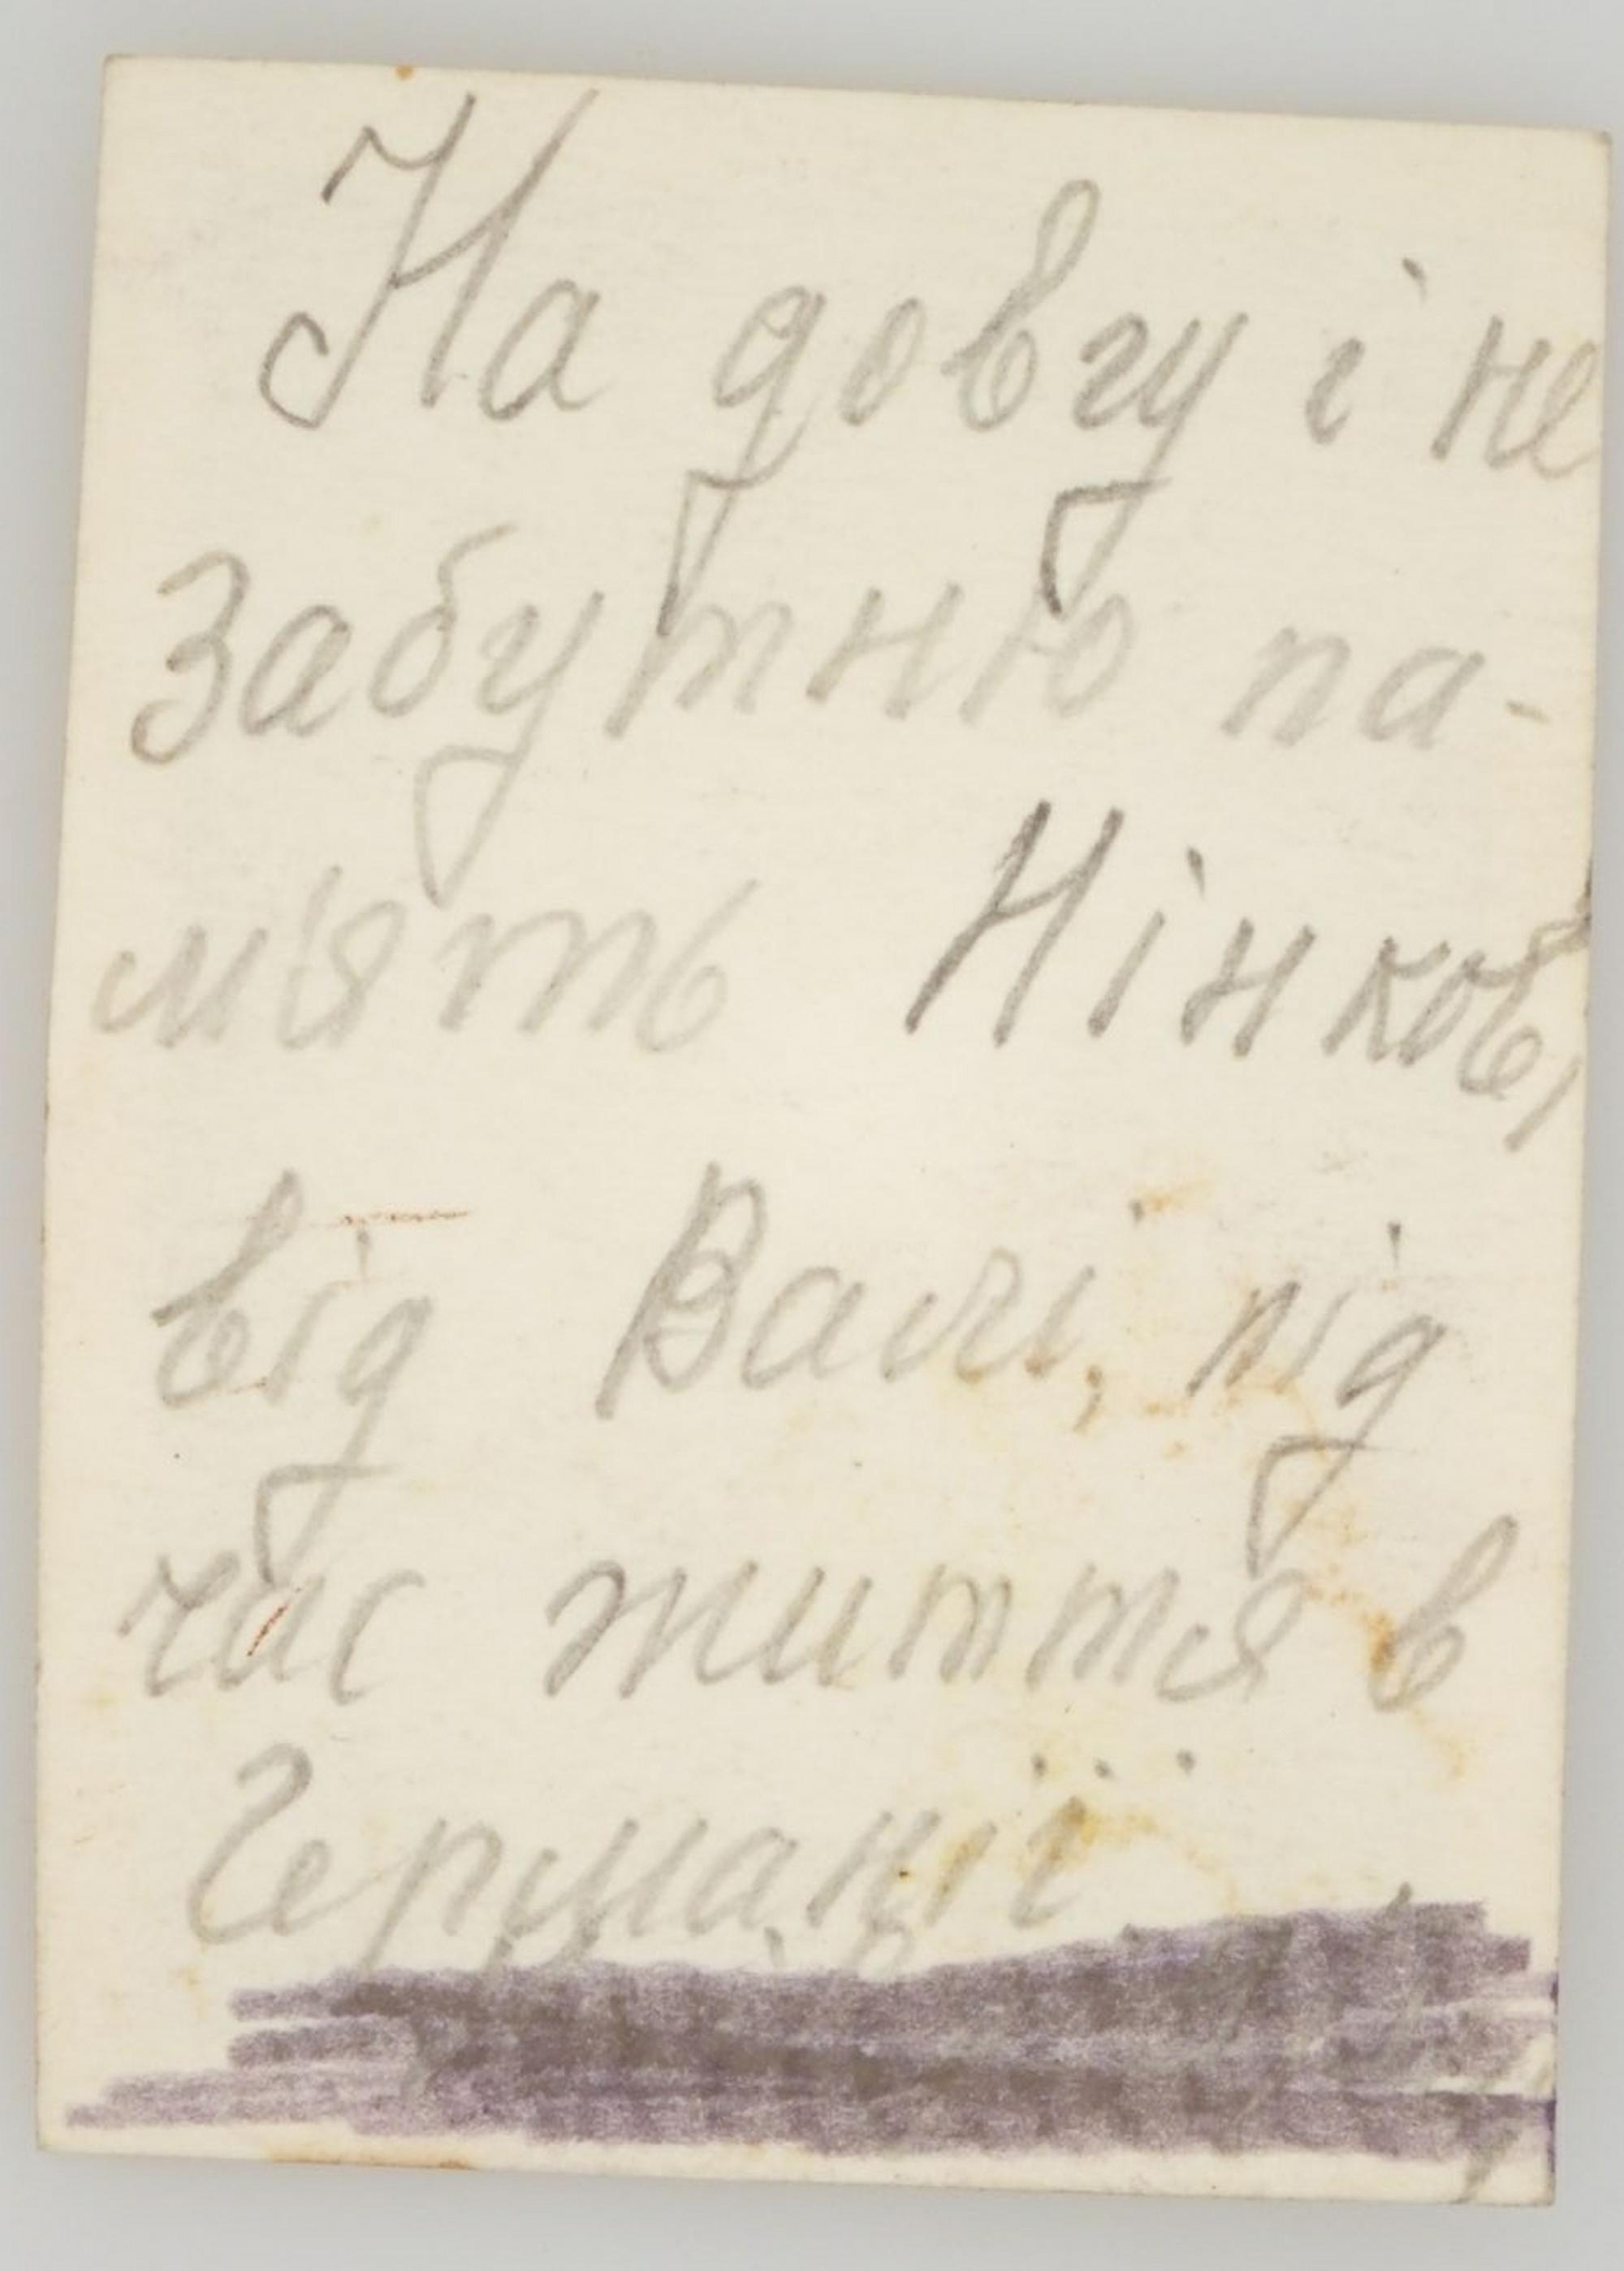 На довгу і не
забутню па-
м'ять Нінков,
від Валі, під
час життя в
Германії